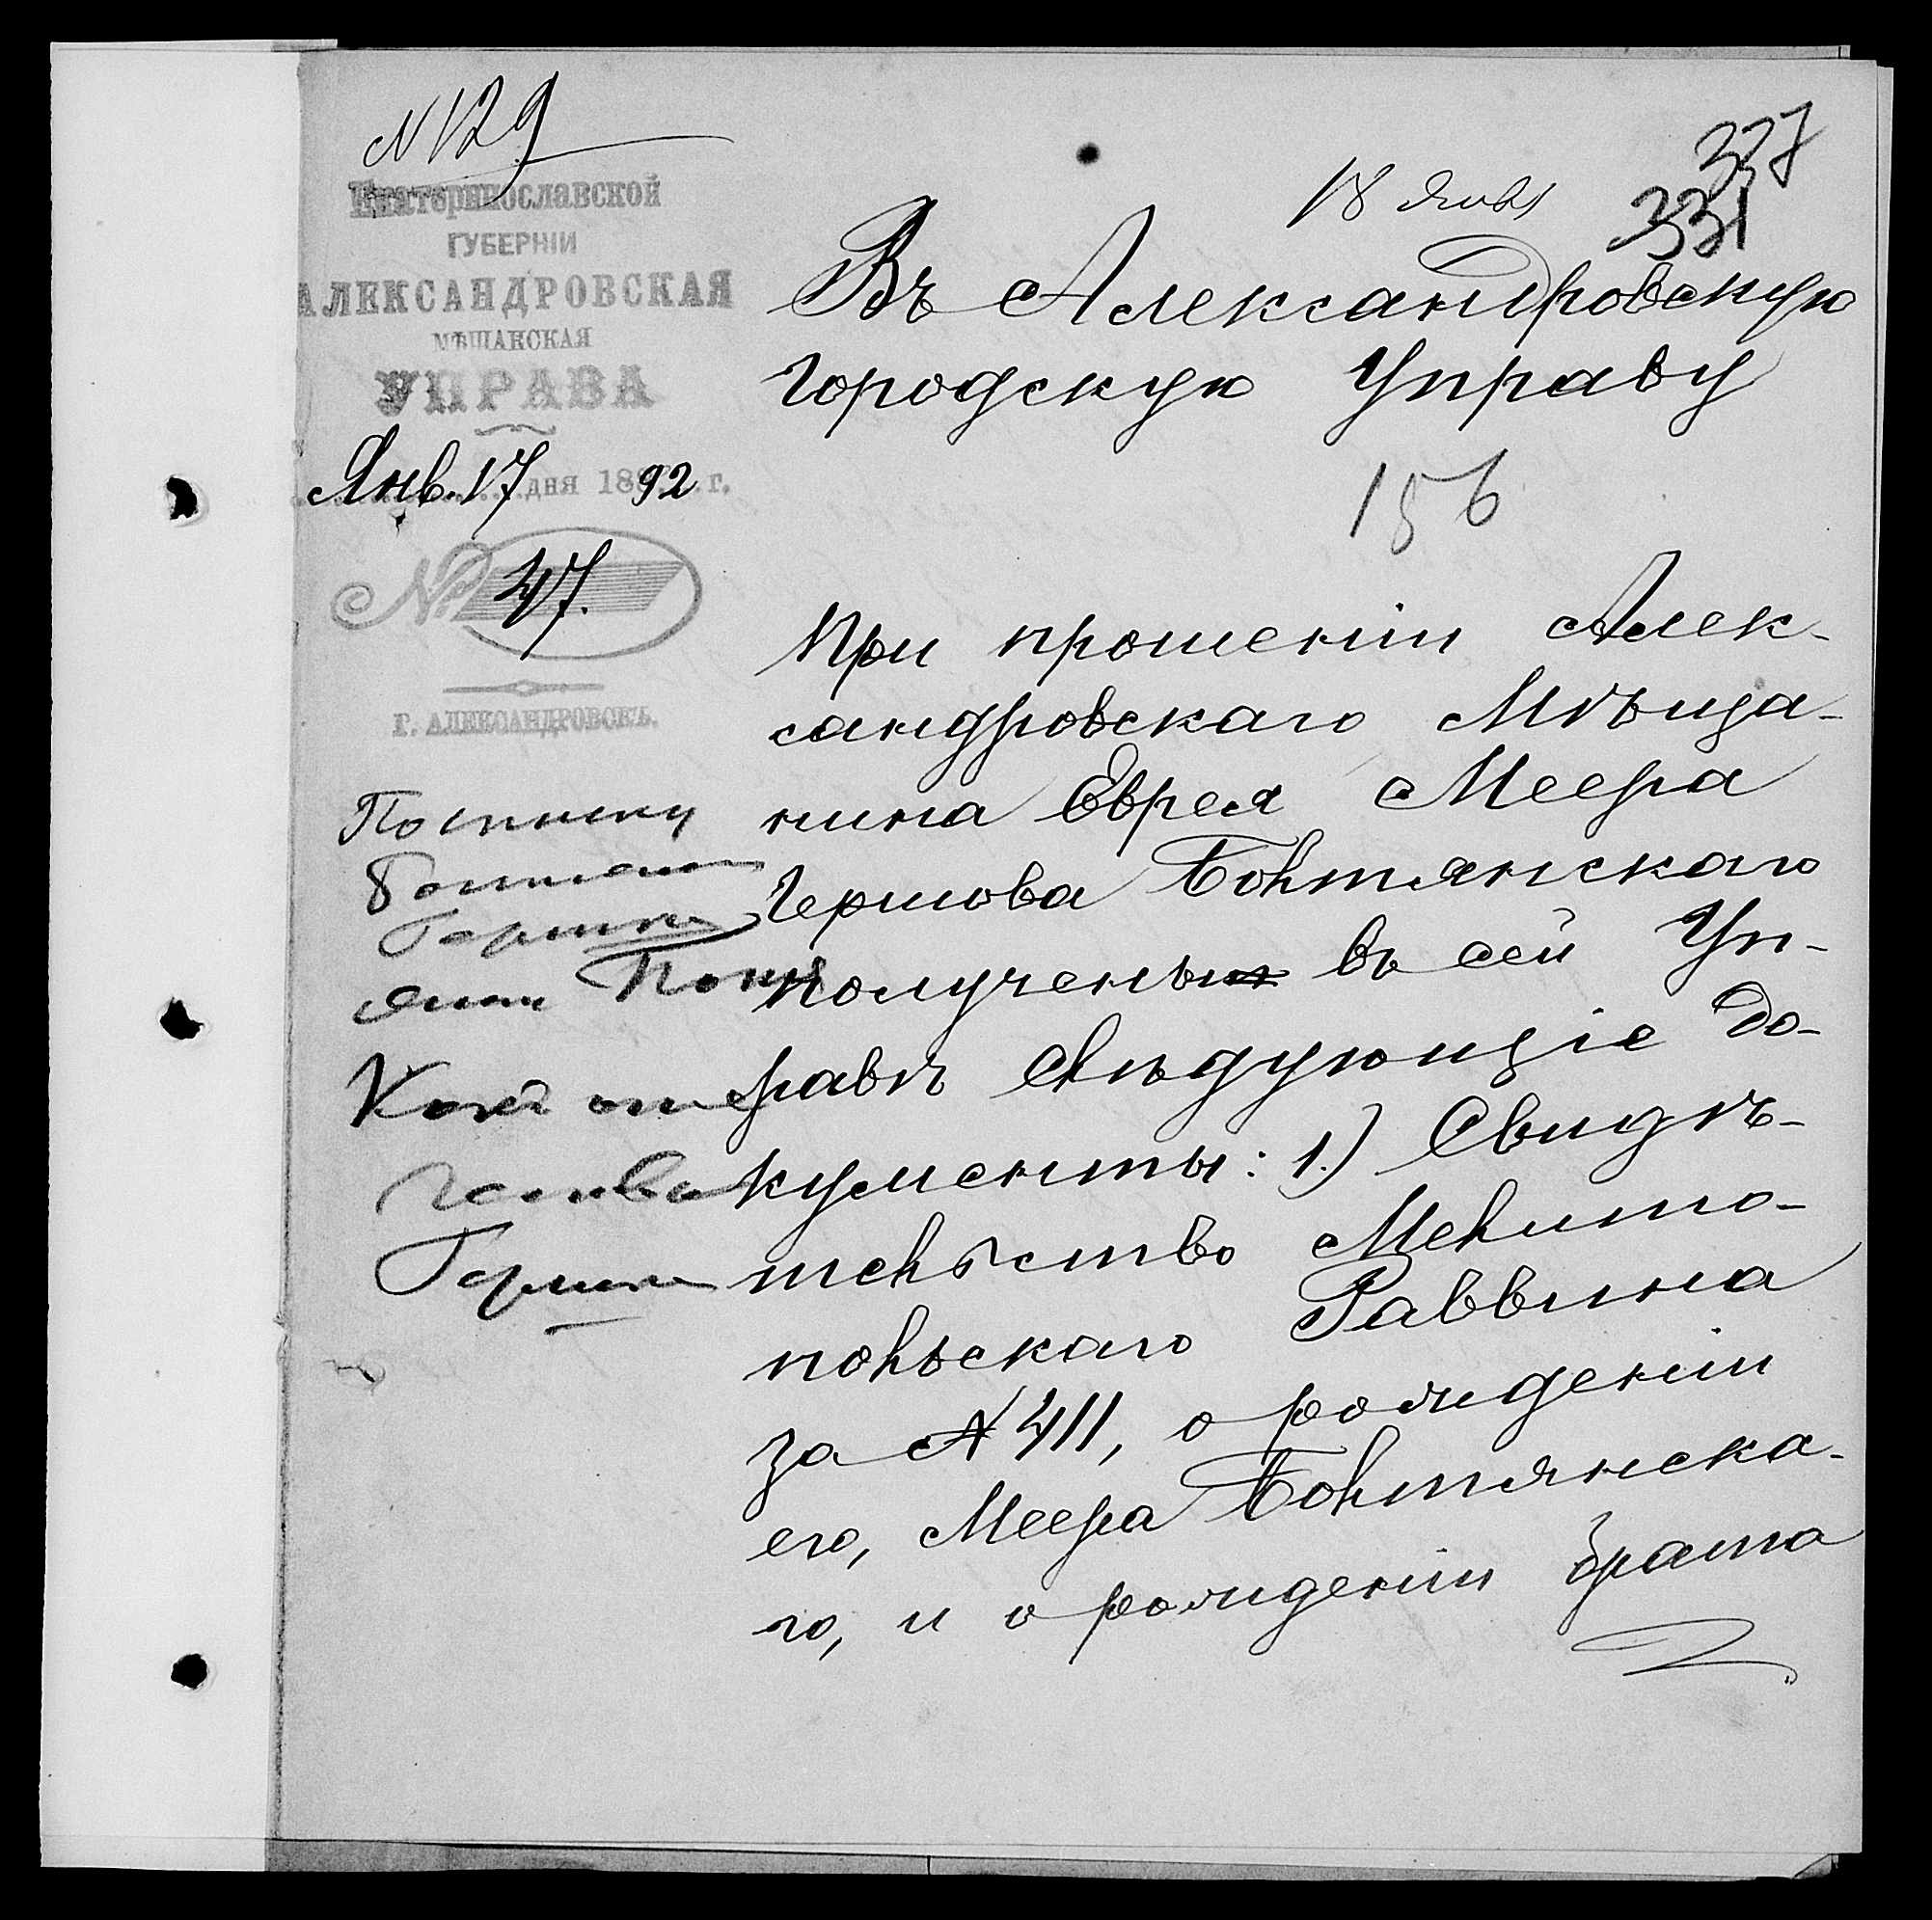 N 129
Екатеринославской
ГУБЕРНІИ
АЛЕКСАНДРОВСКАЯ
МѢЩАНСКАЯ
УПРАВА
Янв. 17 дня 1892 г.
№ 47.
Г. АЛЕКСАНДРОВСКЪ.
327
331
18 Янв
Въ Александровскую
Городскую Управу
156
При прошеніи Алек-
сандровскаго Мѣща-
нина Еврея Меера
Гершова Болтянскаго
получены въ сей Уп-
равѣ слѣдующіе до-
кументы: 1.) Свидѣ-
тельство Мелито-
польскаго Раввина
за N 411, о рожденіи
его, Меера Болтянска-
го, и о рожденіи брата